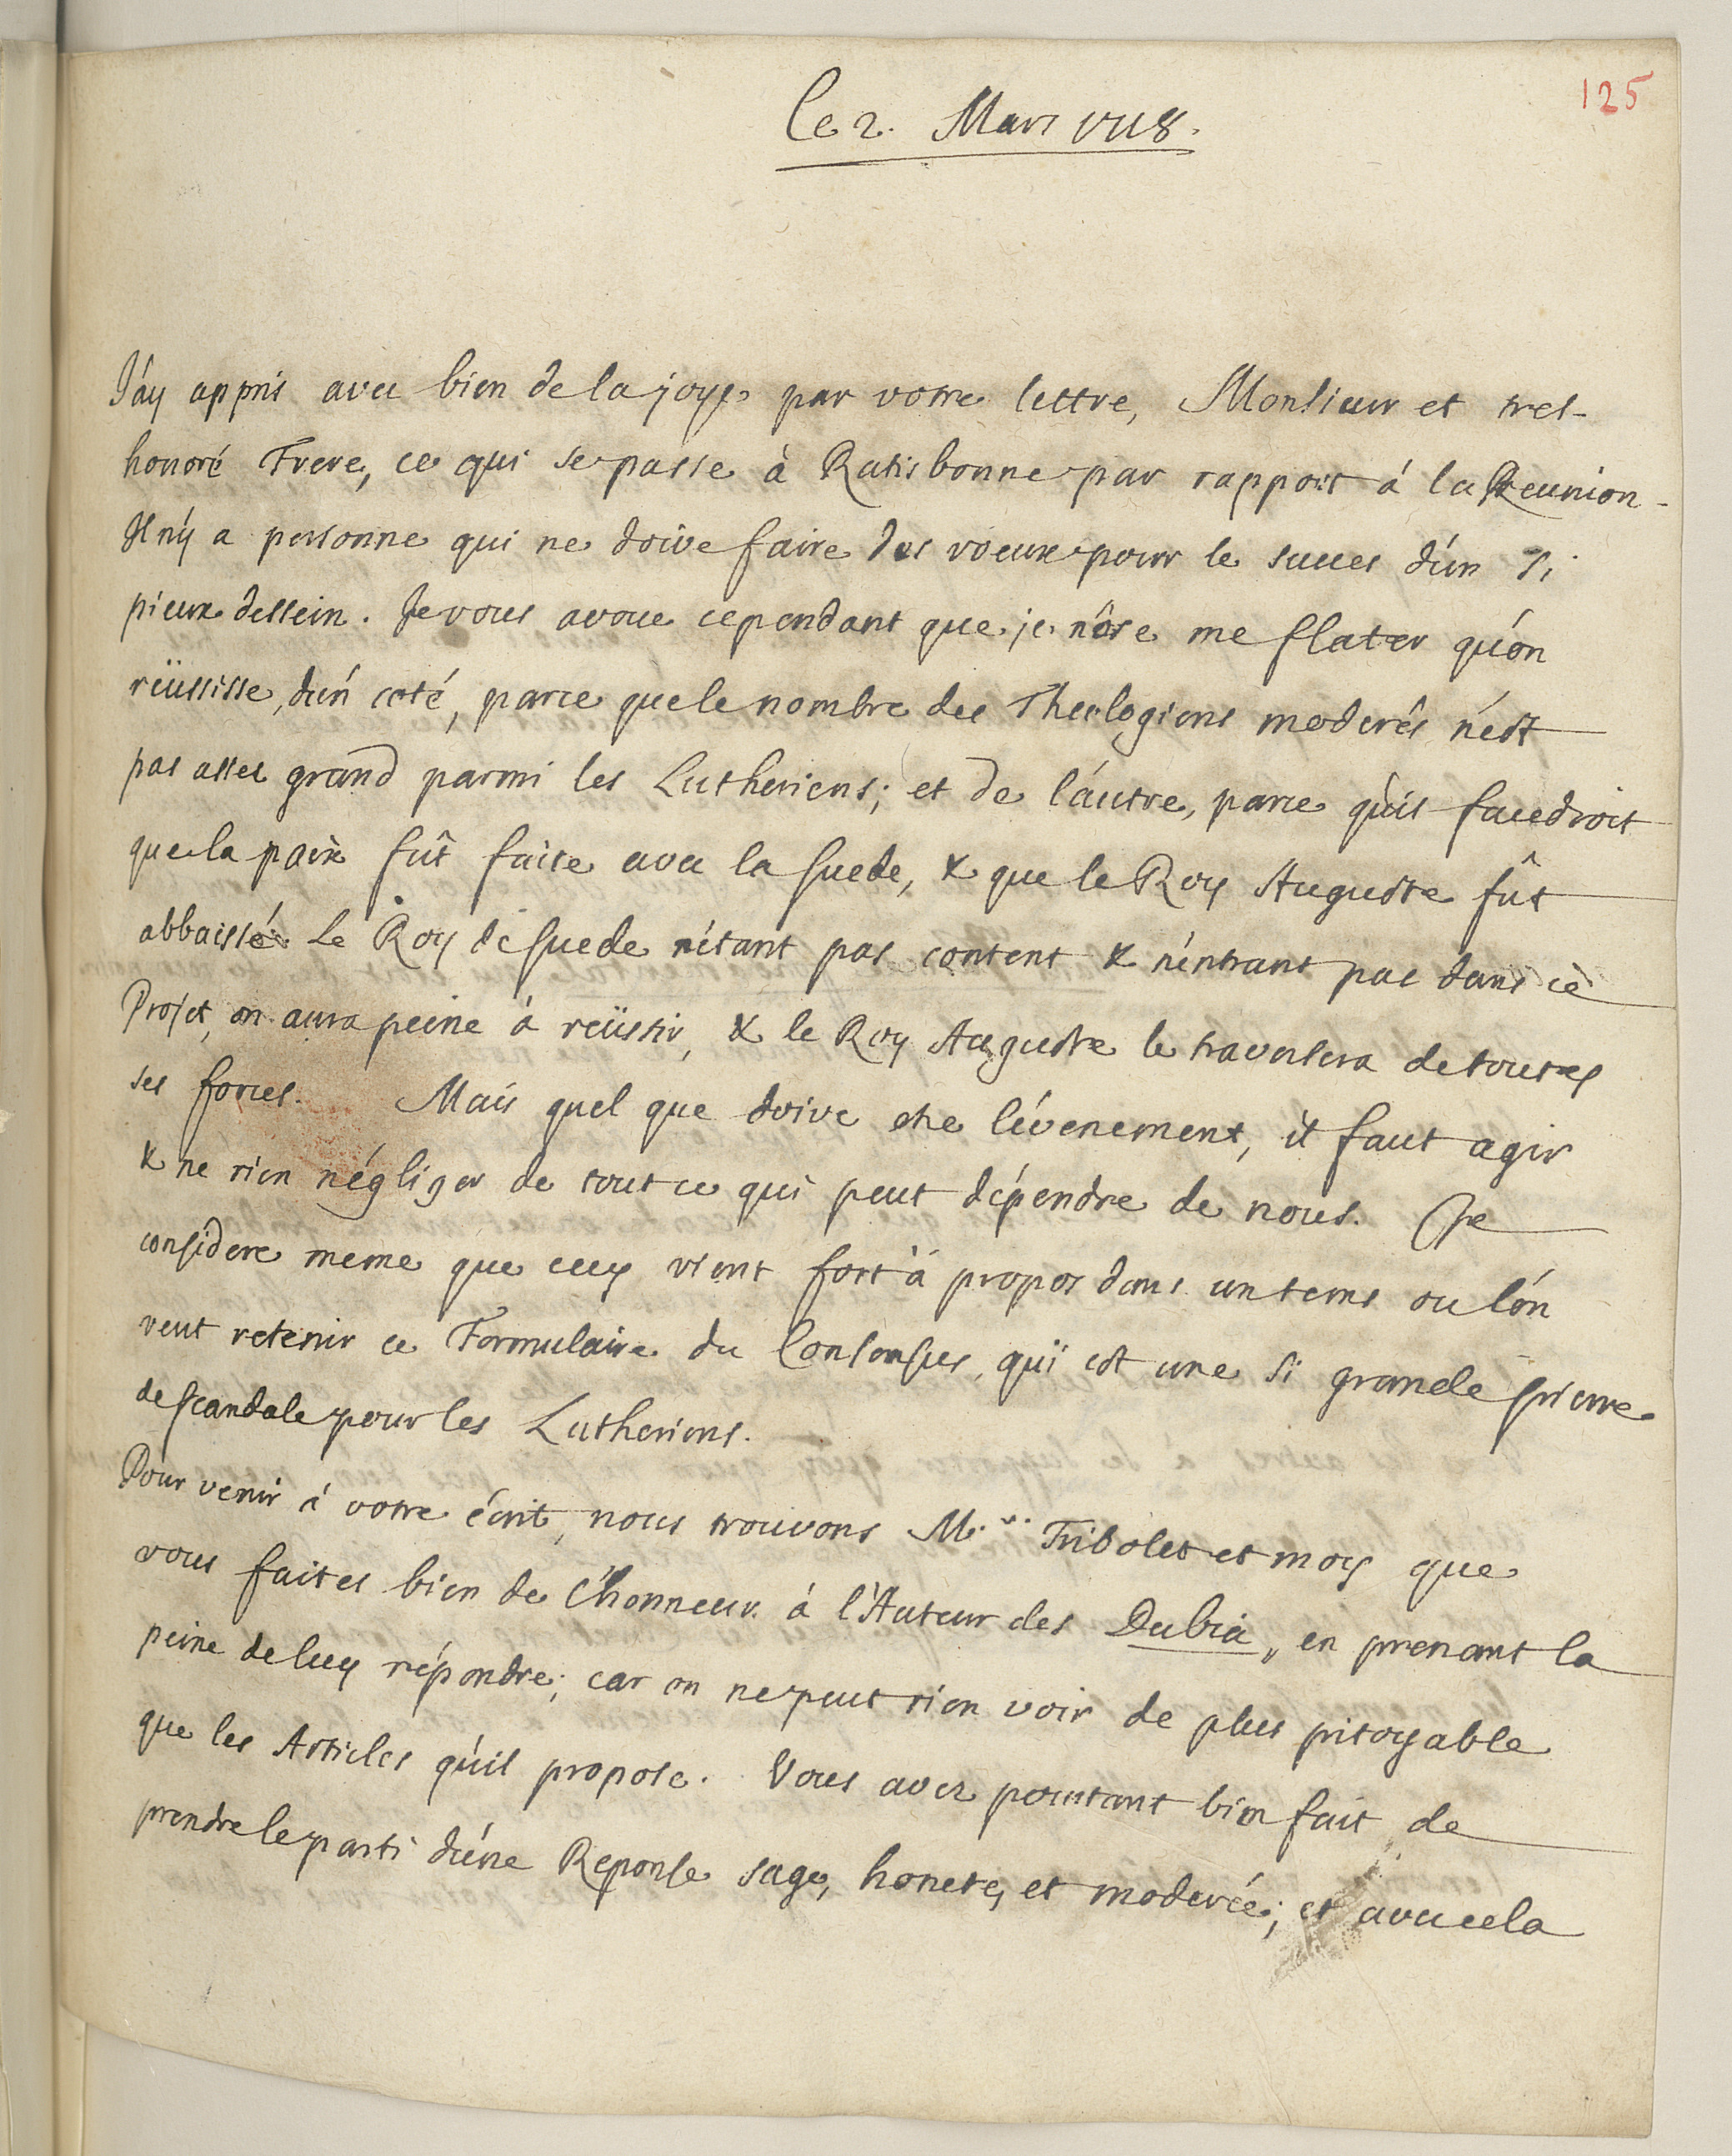 125
Le 2. Mars 1718.
J'ay appris avec bien de la joye par votre lettre, Monsieur et tres-
honoré Frere, ce qui se passe à Ratisbonne par rapport à la Reunion.
Il n'y a personne qui ne doive faire des voeux pour le succes d'un si
pieux dessein. Je vous avoue cependant que je n'ôse me flater qu'on
reüssisse, d'un coté, parce que le nombre des Theologiens moderés n'est
pas assez grand parmi les Lutheriens; et de l'autre, parce qu'il faudroit
que la paix fût faite avec la Suede, & que le Roy Auguste fût
abbaissé. Le Roy de Suede n'étant pas content & n'entrant pas dans ce
Projet, on aura peine à reüssir, & le Roy Auguste le traversera de toutes
ses forces. Mais quel que doive etre l'évenement, il faut agir
& ne rien négliger de tout ce qui peut dépendre de nous. Je
considere meme que cecy vient fort à propos dans un tems ou l'on
veut retenir ce Formulaire du Consensus, qui est une si grande pierre
de scandale pour les Lutheriens.
Pour venir à votre écrit, nous trouvons Mr. Tribolet et moy que
vous faites bien de l'honneur à l'Auteur des Dubia, en prenant la
peine de luy répondre; car on ne peut rien voir de plus pitoyable
que les Articles qu'il propose. Vous avez pourtant bien fait de
prendre le parti d'une Reponse sage, honete, et moderée; et avec cela